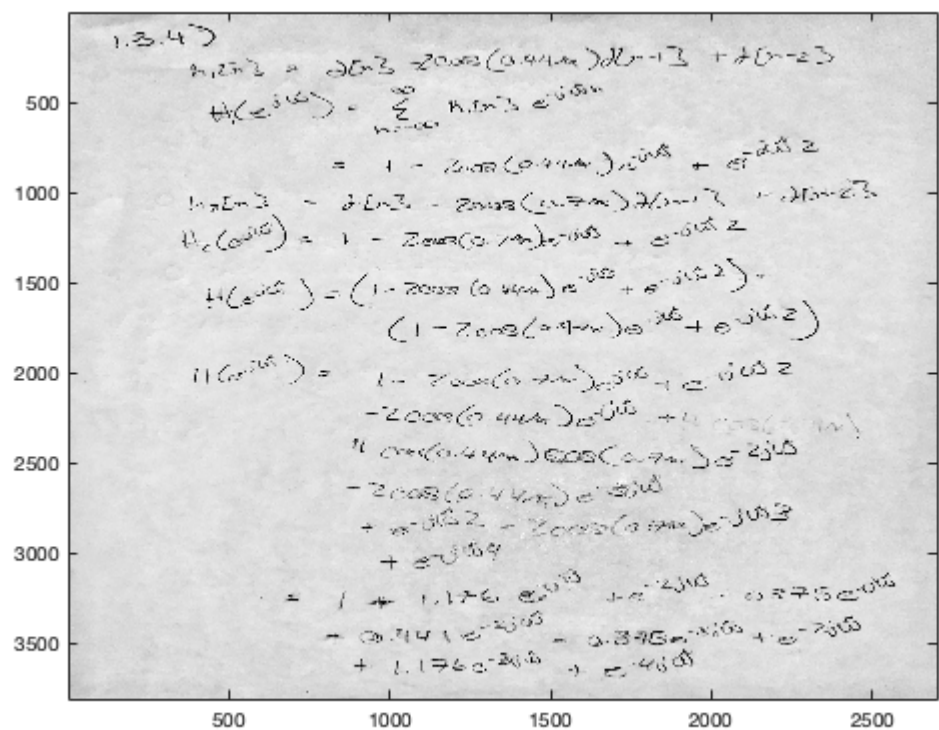 1.3.4)
h₁[n] = δ[n] - 2cos(0.44π)δ[n-1] + δ[n-2]
H₁(e^{jω̂}) = Σ_{n=-∞}^{∞} h₁[n] e^{-jω̂n}
= 1 - 2cos(0.44π)e^{-jω̂} + e^{-jω̂2}
h₂[n] = δ[n] - 2cos(0.7π)δ[n-1] + δ[n-2]
H₂(e^{jω̂}) = 1 - 2cos(0.7π)e^{-jω̂} + e^{-jω̂2}
H(e^{jω̂}) = (1 - 2cos(0.44π)e^{-jω̂} + e^{-jω̂2}) ·
(1 - 2cos(0.7π)e^{-jω̂} + e^{-jω̂2})
H(e^{jω̂}) = 1 - 2cos(0.7π)e^{-jω̂} + e^{-jω̂2}
-2cos(0.44π)e^{-jω̂} +
4cos(0.44π)cos(0.7π)e^{-2jω̂}
-2cos(0.44π)e^{-3jω̂}
+ e^{-jω̂2} - 2cos(0.7π)e^{-jω̂3}
+ e^{-jω̂4}
= 1 + 1.176 e^{-jω̂} + e^{-2jω̂} - 0.375e^{-jω̂}
- 0.441e^{-2jω̂} - 0.375e^{-3jω̂} + e^{-2jω̂}
+ 1.176e^{-3jω̂} + e^{-4jω̂}
500
1000
1500
2000
2500
3000
3500
500 1000 1500 2000 2500